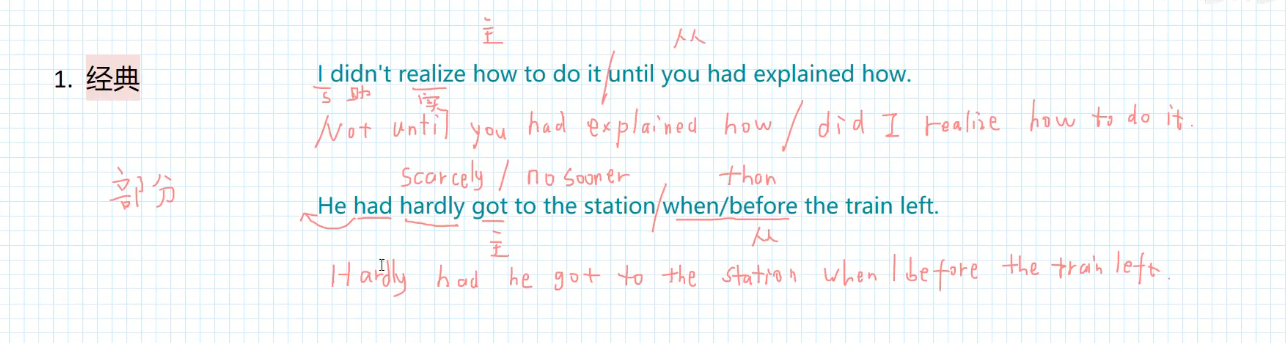 主 从
1. 经典 I didn't realize how to do it/until you had explained how.
S 助 实
Not until you had explained how / did I realize how to do it.
scarcely / no sooner than
部分
He had hardly got to the station/when/before the train left.
主 从
Hardly had he got to the station when / before the train left.